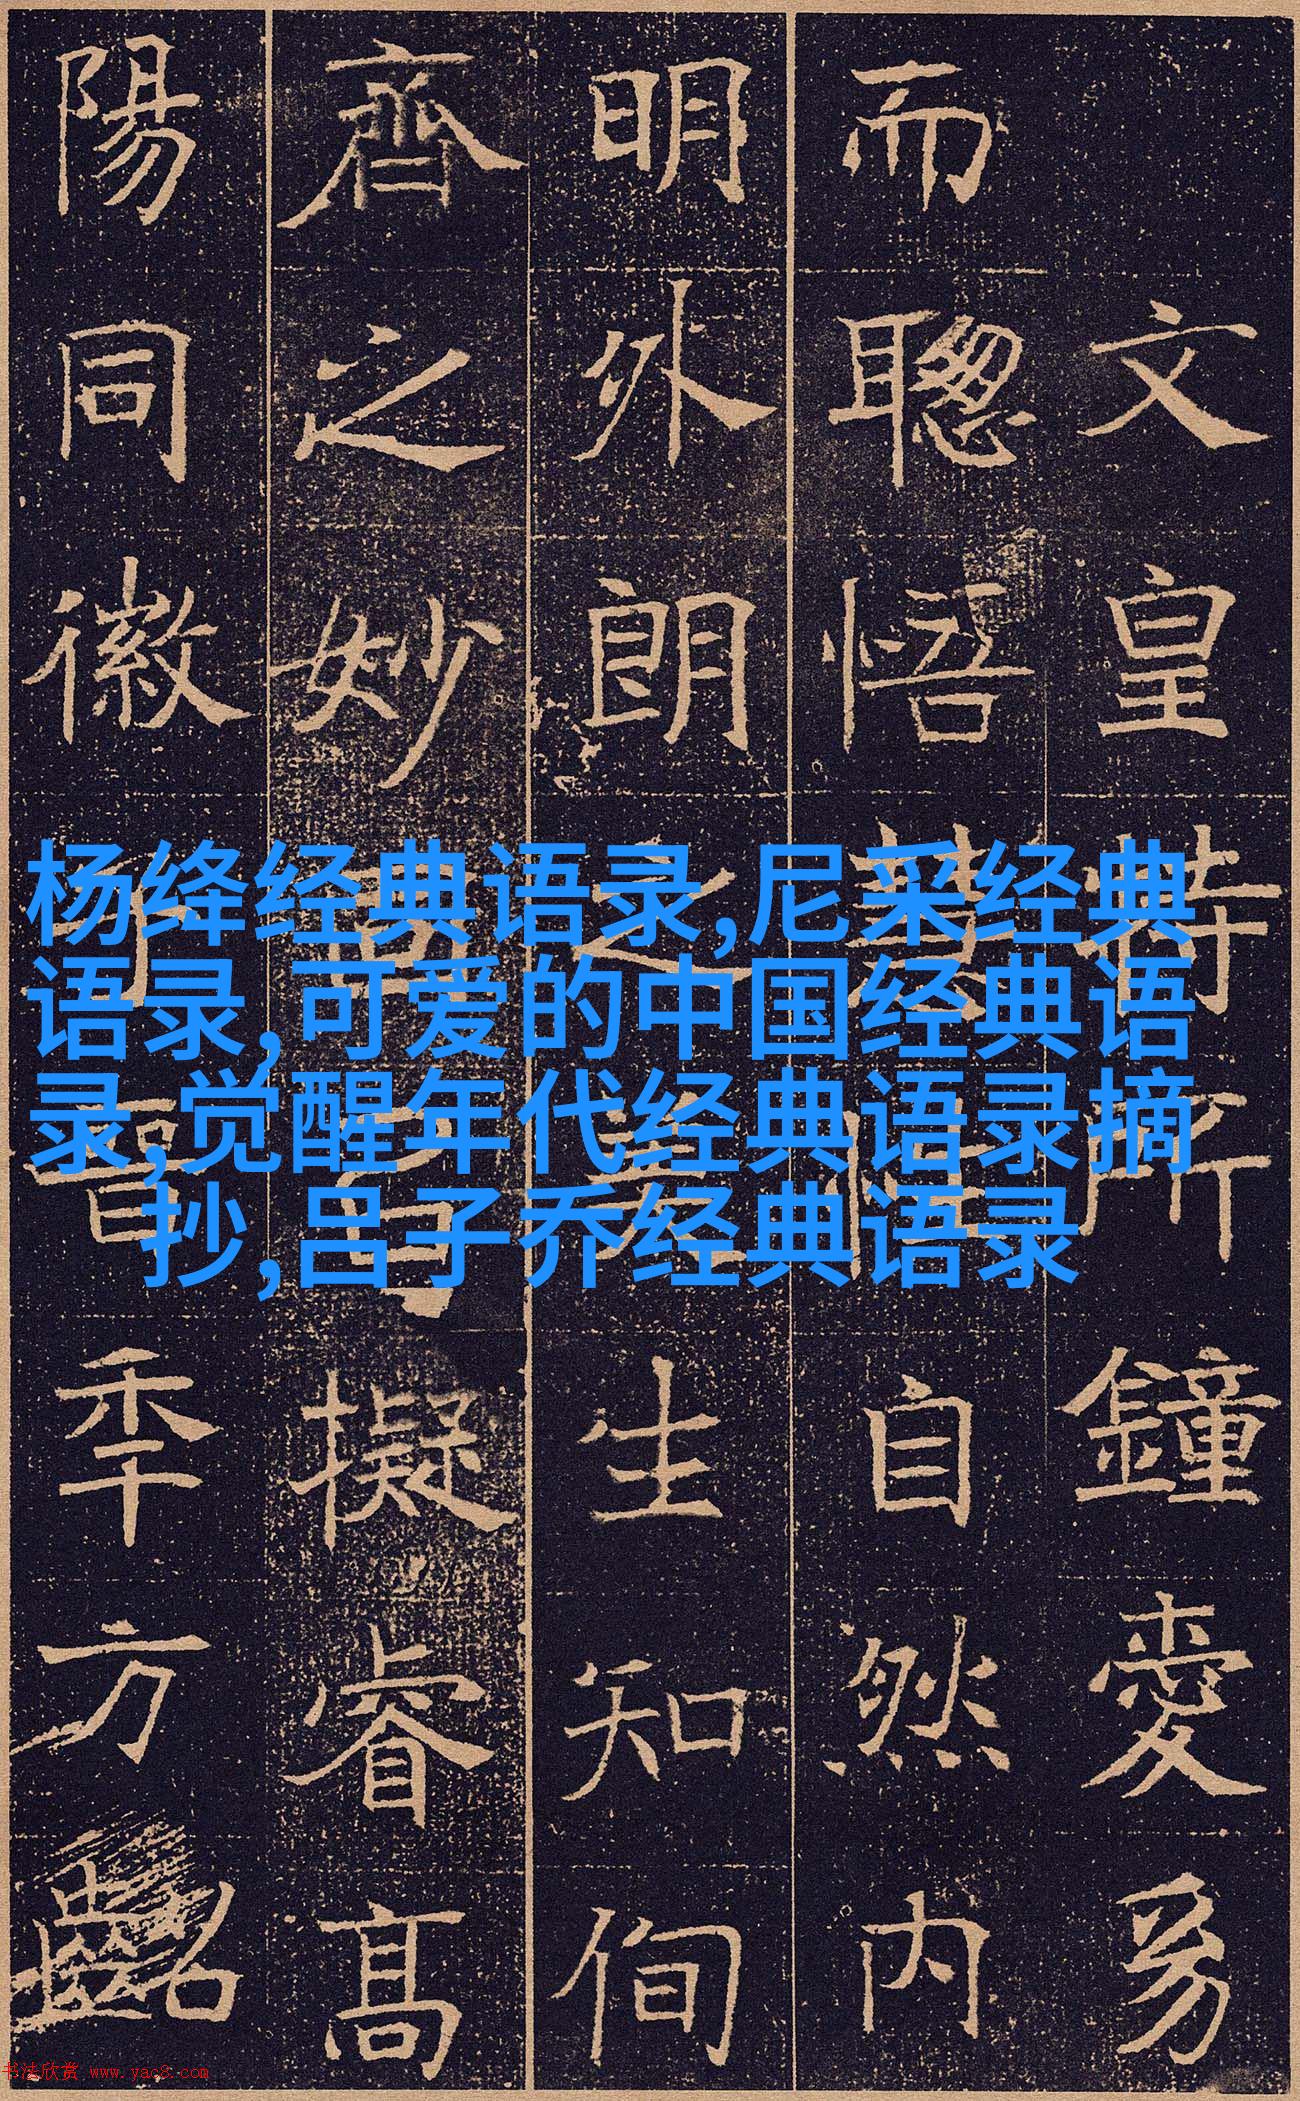 杨绛经典语录,尼采经典
语录,可爱的中国经典语
录,觉醒年代经典语录摘
抄,吕子乔经典语录
文皇特所鐘愛
而聰悟自然内
明外朗之生知侚
齊之妙擬睿高
陽同徽晉季方齠
书法欣赏 www.yac8.com